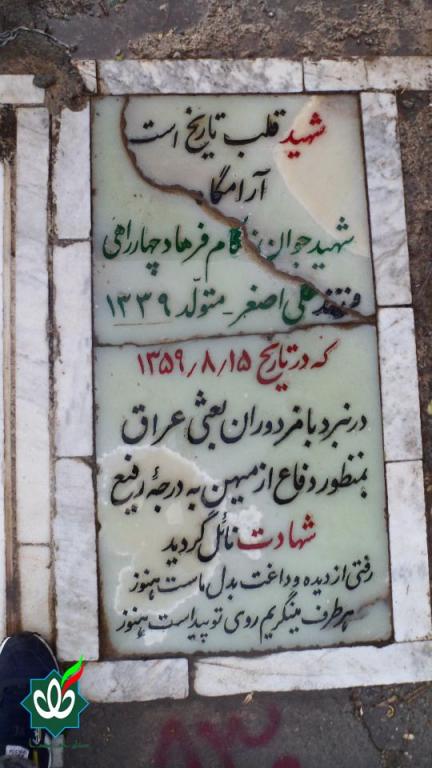 شهید قلب تاریخ است
آرامگاه
شهید جوان ناکام فرهاد چهارراهی
فرزند علی اصغر - متولد ۱۳۳۹
که در تاریخ ۱۵/۸/۱۳۵۹
در نبرد با مزدوران بعثی عراق
بمنظور دفاع از میهن به درجۀ رفیع
شهادت نائل گردید
رفتی از دیده و داغت بدل ماست هنوز
هر طرف مینگریم روی تو پیداست هنوز